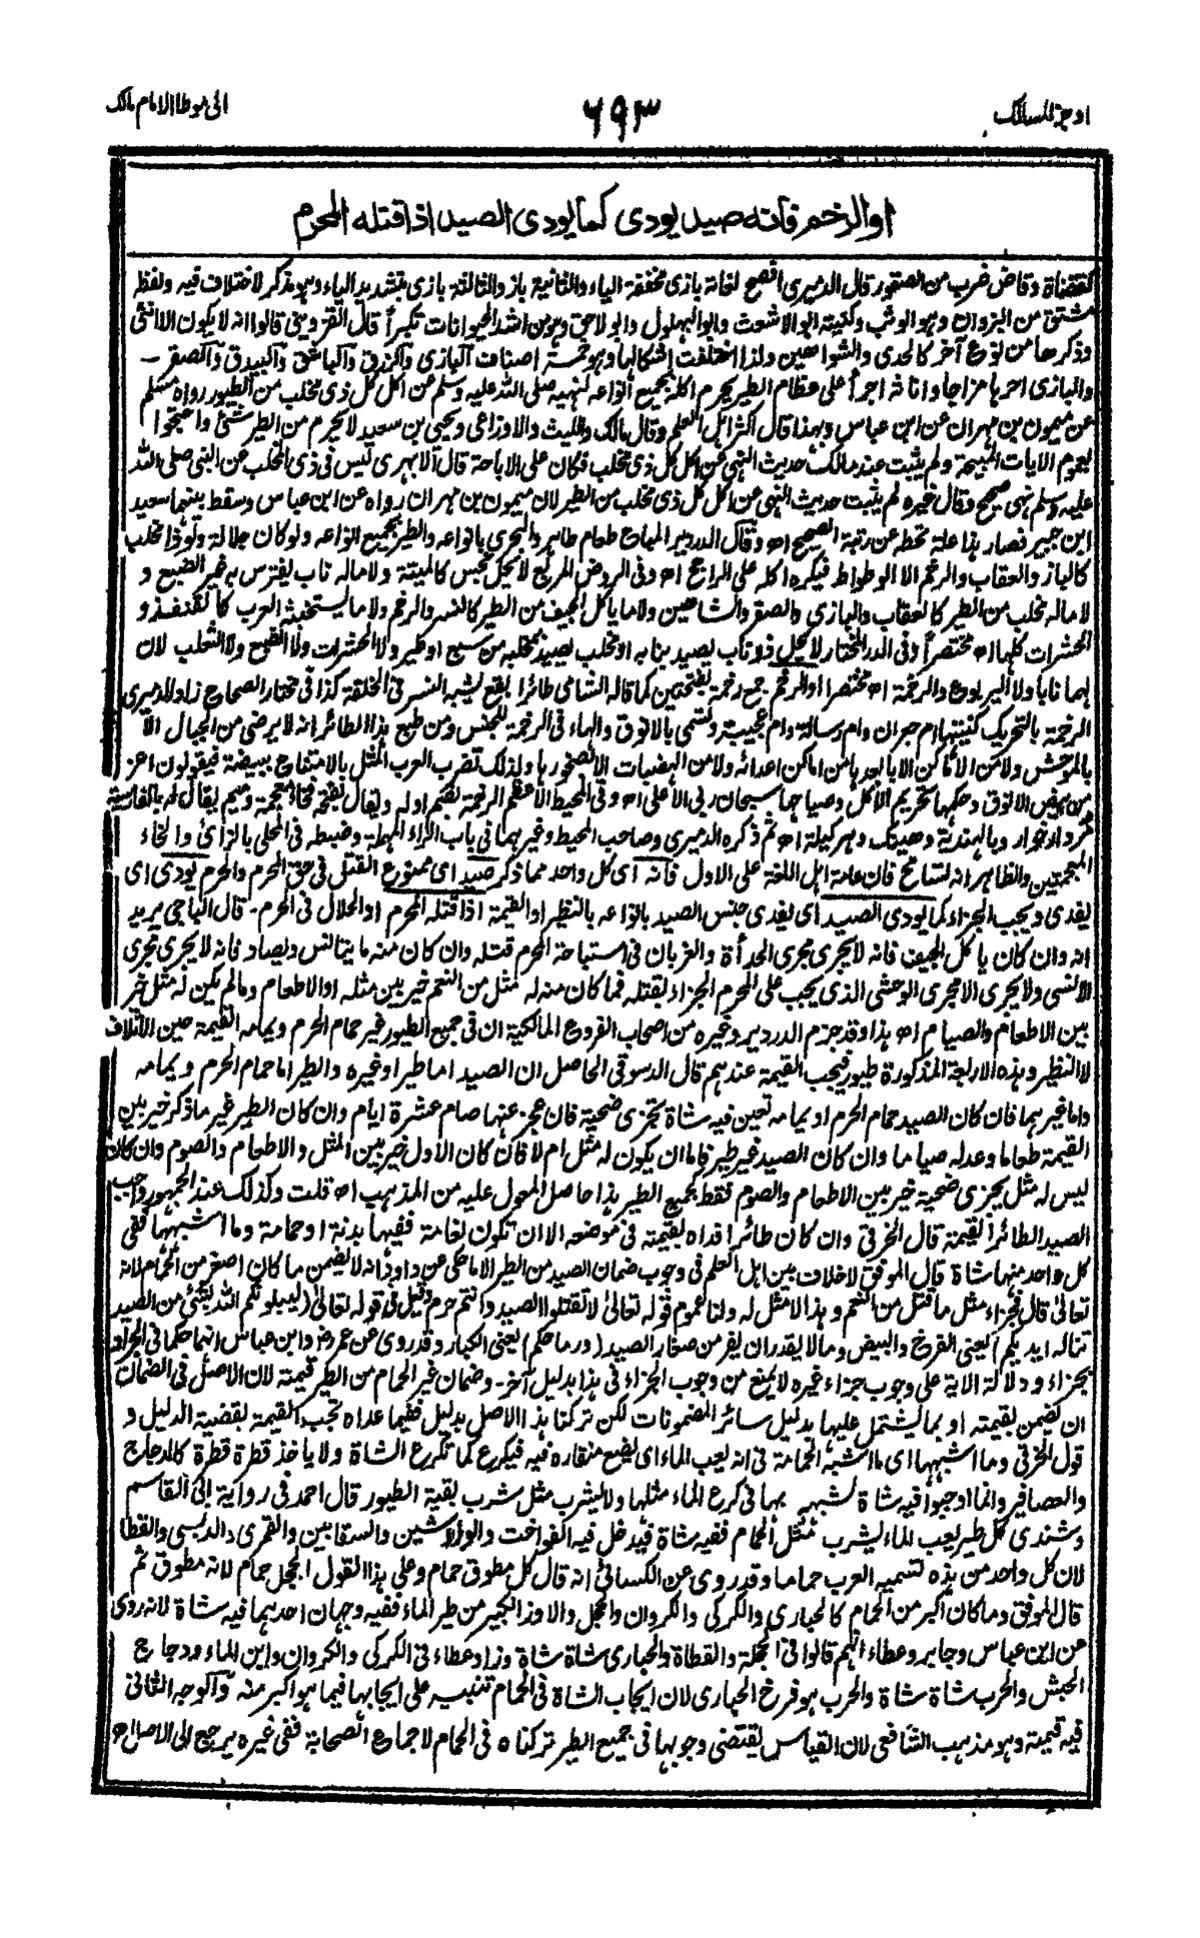 اوجز المسالك ٦٩٣ الى موطا الامام مالك
او الرخم فانه صيد يودى كما يودى الصيد اذا قتله المحرم
كقضاة وقاض ضرب من الصقور قال الدميرى افصح لغاته بازى مخففة الياء والثانية باز والثالثة بازى بتشديد الياء وهو مذكر لا اختلاف فيه ولفظه
مشتق من البزوان وهو الوثب وكنيته ابو الاشعث وابو البهلول وابو لاحق وهو من اشد الحيوانات تكبرا قال القزوينى قالوا انه لا يكون الا انثى
وذكرها من نوع آخر كالحدى والشواهين ولذا اختلفت اشكالها وهو خمسة اصناف البازى والزرق والباشق والبيدق والصقر
والبازى احرها مزاجا واناثه اجرأ على عظام الطير يحرم اكله بجميع انواعه لنهيه صلى الله عليه وسلم عن اكل كل ذى مخلب من الطيور رواه مسلم
عن ميمون بن مهران عن ابن عباس وبهذا قال اكثر اهل العلم وقال مالك والليث والاوزاعى ويحيى بن سعيد لا يحرم من الطير شئ واحتجوا
بعموم الايات المبيحة ولم يثبت عند مالك حديث النهى عن اكل كل ذى مخلب فكان على الاباحة قال الابهرى ليس فى ذى المخلب عن النبى صلى الله
عليه وسلم نهى صحيح وقال غيره لم يثبت حديث النهى عن اكل كل ذى مخلب من الطير لان ميمون بن مهران رواه عن ابن عباس وسقط بينهما سعيد
ابن جبير فصار هذا علة تحطه عن رتبة الصحيح اه وقال الدردير المباح طعام طاهر والبحرى بانواعه والطير بجميع انواعه ولو كان جلالة ولو ذا مخلب
كالباز والعقاب والرخم الا الوطواط فيكره اكله على الراجح اه وفى الروض المربع لا يحل نجس كالميتة ولا ماله ناب يفترس به غير الضبع و
لا ماله مخلب من الطير كالعقاب والبازى والصقر والشاهين ولا ما ياكل الجيف من الطير كالنسر والرخم ولا ما يستخبثه العرب كالقنفذ و
الحشرات كلها اه مختصرا وفى الدر المختار لا يحل ذو ناب يصيد بنابه او مخلب يصيد بمخلبه من سبع او طير ولا الحشرات ولا الضبع ولا الثعلب لان
لهما نابا ولا اليربوع والرخمة اه مختصرا او الرخم جمع رخمة بفتحتين كما قاله الشامى طائر ابقع يشبه النسر فى الخلقة كذا فى مختار الصحاح زاد الدميرى
الرخمة بالتحريك كنيتها ام جعران وام رسالة وام عجيبة وتسمى بالانوق والهاء فى الرخمة للجنس ومن طبع هذا الطائر انه لا يرضى من الجبال الا
بالموحش ولا من الاماكن الا بابعدها من اماكن اعدائه ولا من الهضبات الا بصخورها ولذلك تضرب العرب المثل بالامتناع ببيضه فيقولون اعز
من بيض الانوق وحكمها تحريم الاكل وصياحها سبحان ربى الاعلى اه وفى المحيط الاعظم الرخمة بضم اوله ويقال بفتح خاء معجمة وميم يقال له بالفارسية
وبالهندية اه ثم ذكره الدميرى وصاحب المحيط وغيرهما فى باب الراء المهملة وضبطه فى المحلى بالزاى والخاء
المعجمتين والظاهر انه تسامح فان عامة اهل اللغة على الاول فانه اى كل واحد مما ذكر صيد اى ممنوع القتل فى حق المحرم والحرم يودى اى
يفدى ويجب الجزاء كما يودى الصيد اى يفدى جنس الصيد بانواعه بالنظير او القيمة اذا قتله المحرم او الحلال فى الحرم۔ قال الباجى يريد
انه وان كان ياكل الجيف فانه لا يجرى مجرى الحدأة والغربان فى استباحة المحرم قتله وان كان منه ما يتانس ويصاد فانه لا يجرى مجرى
الانسى ولا يجرى الا مجرى الوحشى الذى يجب على المحرم الجزاء بقتله فما كان منه له مثل من النعم خير بين مثله او الاطعام وما لم يكن له مثل خير
بين الاطعام والصيام اه هذا وقد جزم الدردير وغيره من اصحاب الفروع المالكية ان فى جميع الطيور غير حمام الحرم ويمامه القيمة حين الاتلاف
لا النظير وهذه الاربعة المذكورة طيور فيجب القيمة عندهم قال الدسوقى الحاصل ان الصيد اما طير او غيره والطير اما حمام الحرم ويمامه
واما غيرهما فان كان الصيد حمام الحرم او يمامه تعين فيه شاة تجزى ضحية فان عجز عنها صام عشرة ايام وان كان الطير غير ما ذكر خير بين
القيمة طعاما وعدله صياما وان كان الصيد غير طير فاما ان يكون له مثل ام لا فان كان الاول خير بين المثل والاطعام والصوم وان كان
ليس له مثل يجزى ضحية خير بين الاطعام والصوم فقط بجميع الطير هذا حاصل المعول عليه من المذهب اه قلت وكذلك عند الجمهور واجب
الصيد الطائر القيمة قال الخرقى وان كان طائرا فداه بقيمته فى موضعه الا ان تكون نعامة ففيها بدنة او حمامة وما اشبهها ففى
كل واحد منها شاة قال الموفق لا خلاف بين اهل العلم فى وجوب ضمان الصيد من الطير الا ما حكى عن داود انه لا يضمن ما كان اصغر من الحمام لانه
تعالى قال فجزاء مثل ما قتل من النعم وهذا لا مثل له ولنا عموم قوله تعالى لا تقتلوا الصيد وانتم حرم وقيل فى قوله تعالى (ليبلونكم الله بشئ من الصيد
تناله ايديكم) يعنى الفرخ والبيض وما لا يقدر ان يفر من صغار الصيد (ورماحكم) يعنى الكبار وقد روى عن عمر رض وابن عباس انهما حكما فى الجراد
بجزاء ودلالة الاية على وجوب جزاء غيره لا يمنع من وجوب الجزاء فى هذا بدليل آخر۔ وضمان غير الحمام من الطير قيمته لان الاصل فى الضمان
ان يضمن بقيمته او بما يشتمل عليها بدليل سائر المضمونات لكن تركنا هذا الاصل بدليل ففيما عداه تجب القيمة بقضية الدليل و
قول الخرقى وما اشبهها اى ما اشبه الحمامة فى انه يعب الماء اى يضع منقاره فيه فيكرع كما تكرع الشاة ولا ياخذ قطرة قطرة كالدجاج
والعصافير وانما اوجبوا فيه شاة لشبهه بها فى كرع الماء مثلها ولا يشرب مثل شرب بقية الطيور قال احمد فى رواية ابى القاسم
وسندى كل طير يعب الماء يشرب مثل الحمام ففيه شاة فيدخل فيه الفواخت والوراشين والسقابين والقمرى والدبسى والقطا
لان كل واحد من هذه تسميه العرب حماما وقد روى عن الكسائى انه قال كل مطوق حمام وعلى هذا القول الحجل حمام لانه مطوق ثم
قال الموفق وما كان اكبر من الحمام كالحبارى والكركى والكروان والحجل والاوز الكبير من طير الماء ففيه وجهان احدهما فيه شاة لانه روى
عن ابن عباس وجابر وعطاء انهم قالوا فى الحجلة والقطاة والحبارى شاة شاة وزاد عطاء فى الكركى والكروان وابن الماء ودجاج
الحبش والحرب شاة شاة والحرب هو فرخ الحبارى لان ايجاب الشاة فى الحمام تنبيه على ايجابها فيما هو اكبر منه والوجه الثانى
فيه قيمته وهو مذهب الشافعى لان القياس يقتضى وجوبها فى جميع الطير تركناه فى الحمام لاجماع الصحابة ففى غيره يرجع الى الاصل اه